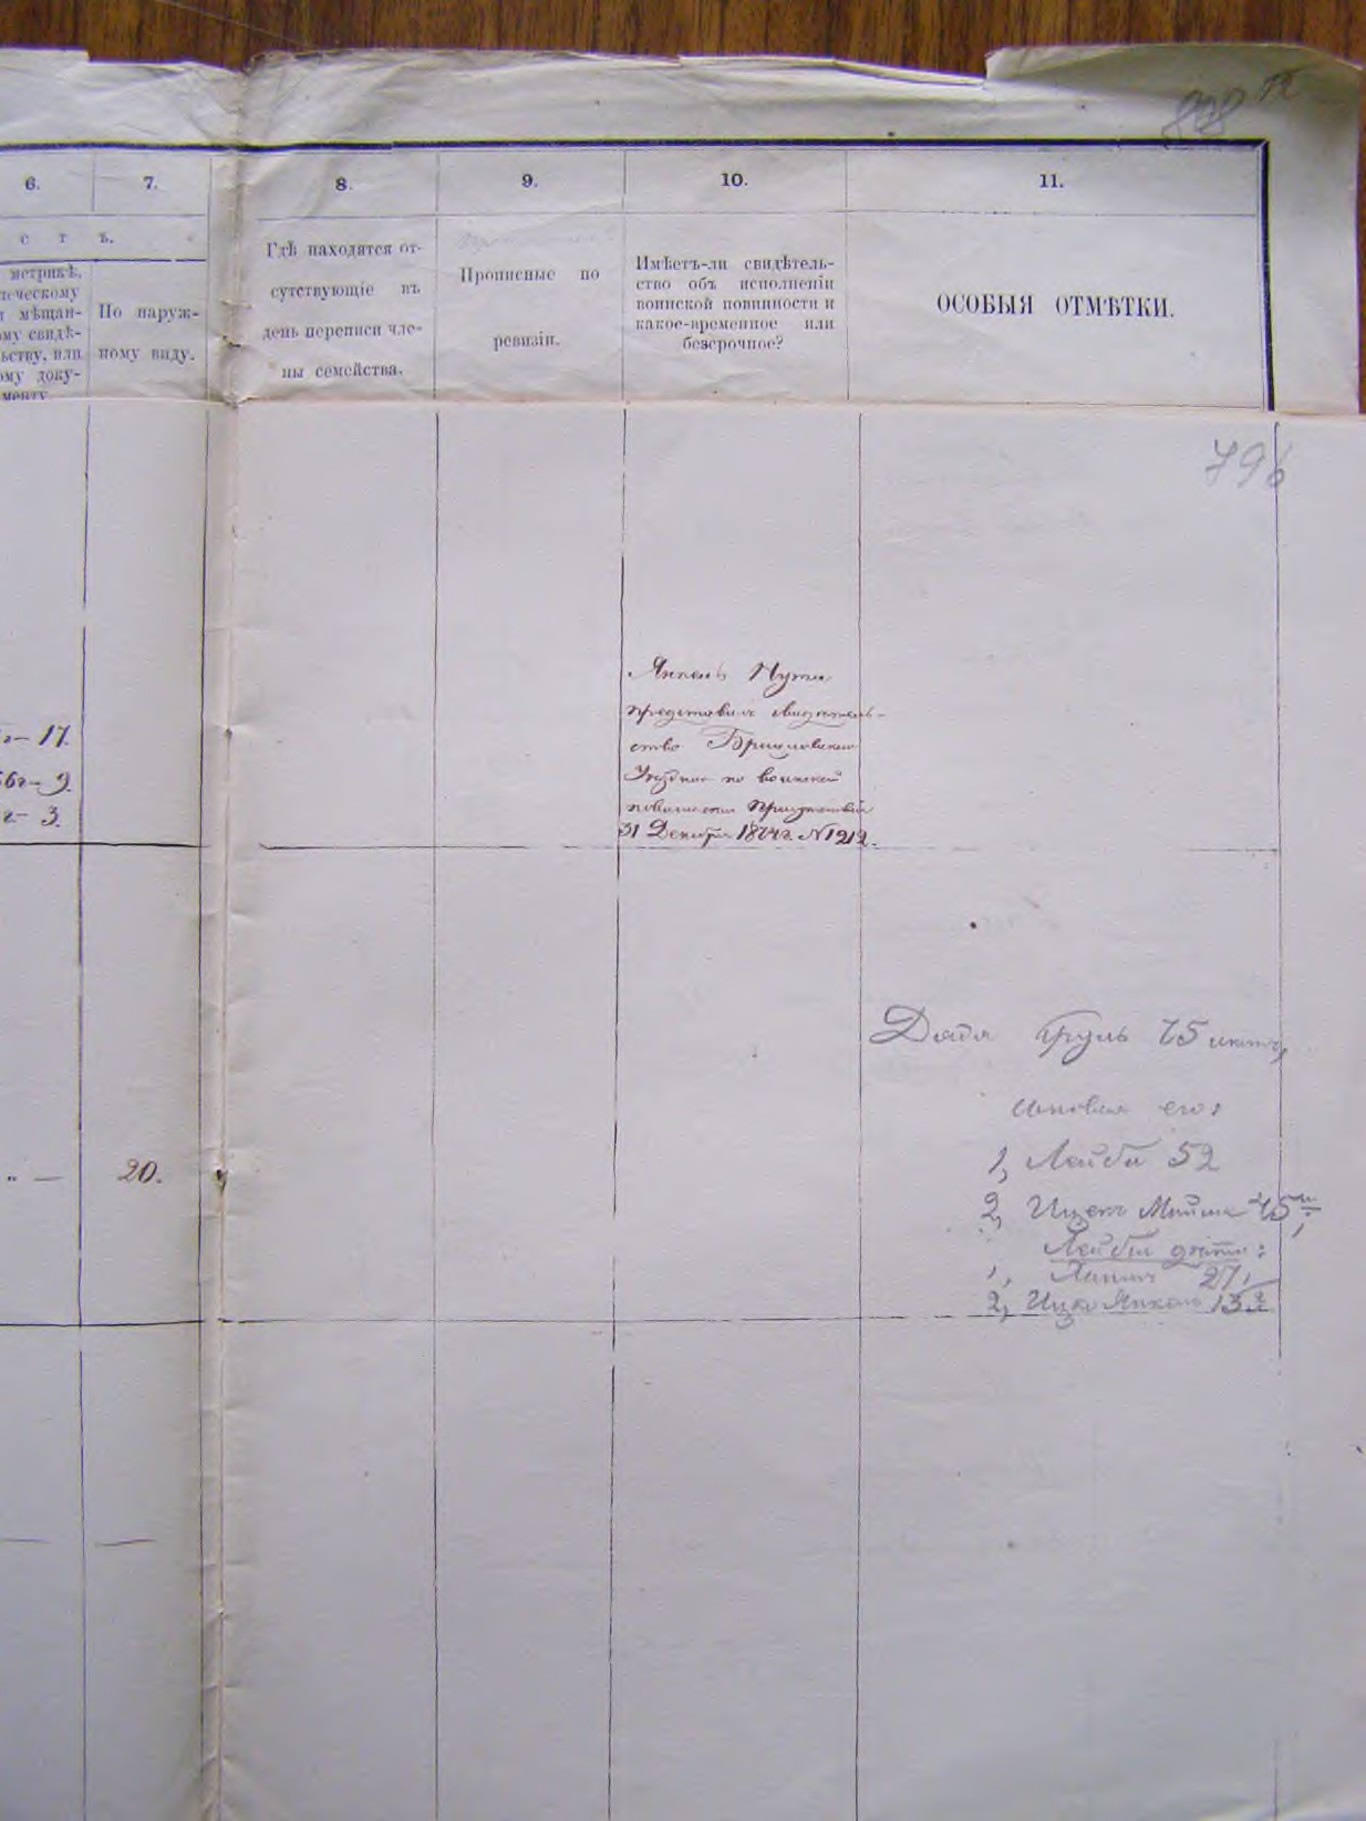 796
6. 7. 8. 9. 10. 11.
с т ъ.
метрикѣ,
ческому
мѣщан-
ому свидѣ-
ьству, или
ому доку-
менту.
По наруж-
ному виду.
Гдѣ находятся от-
сутствующіе въ
день переписи чле-
ны семейства.
Прописные по
ревизіи.
Имѣетъ-ли свидѣтель-
ство объ исполненіи
воинской повинности и
какое-временное или
безсрочное?
ОСОБЫЯ ОТМѢТКИ.
г- 17.
6г- 9.
г- 3.
Янкель
представилъ свидѣтель-
ство
по воинской
повинности
31 Декабря 1874г. N 1212.
" — 20.
Дядя Сруль 75 лѣтъ,
сыновья его:
1, Лейба 52
2, Ицекъ 45
Лейбы дѣти:
1, 27,
2, Ицко Янкель 13